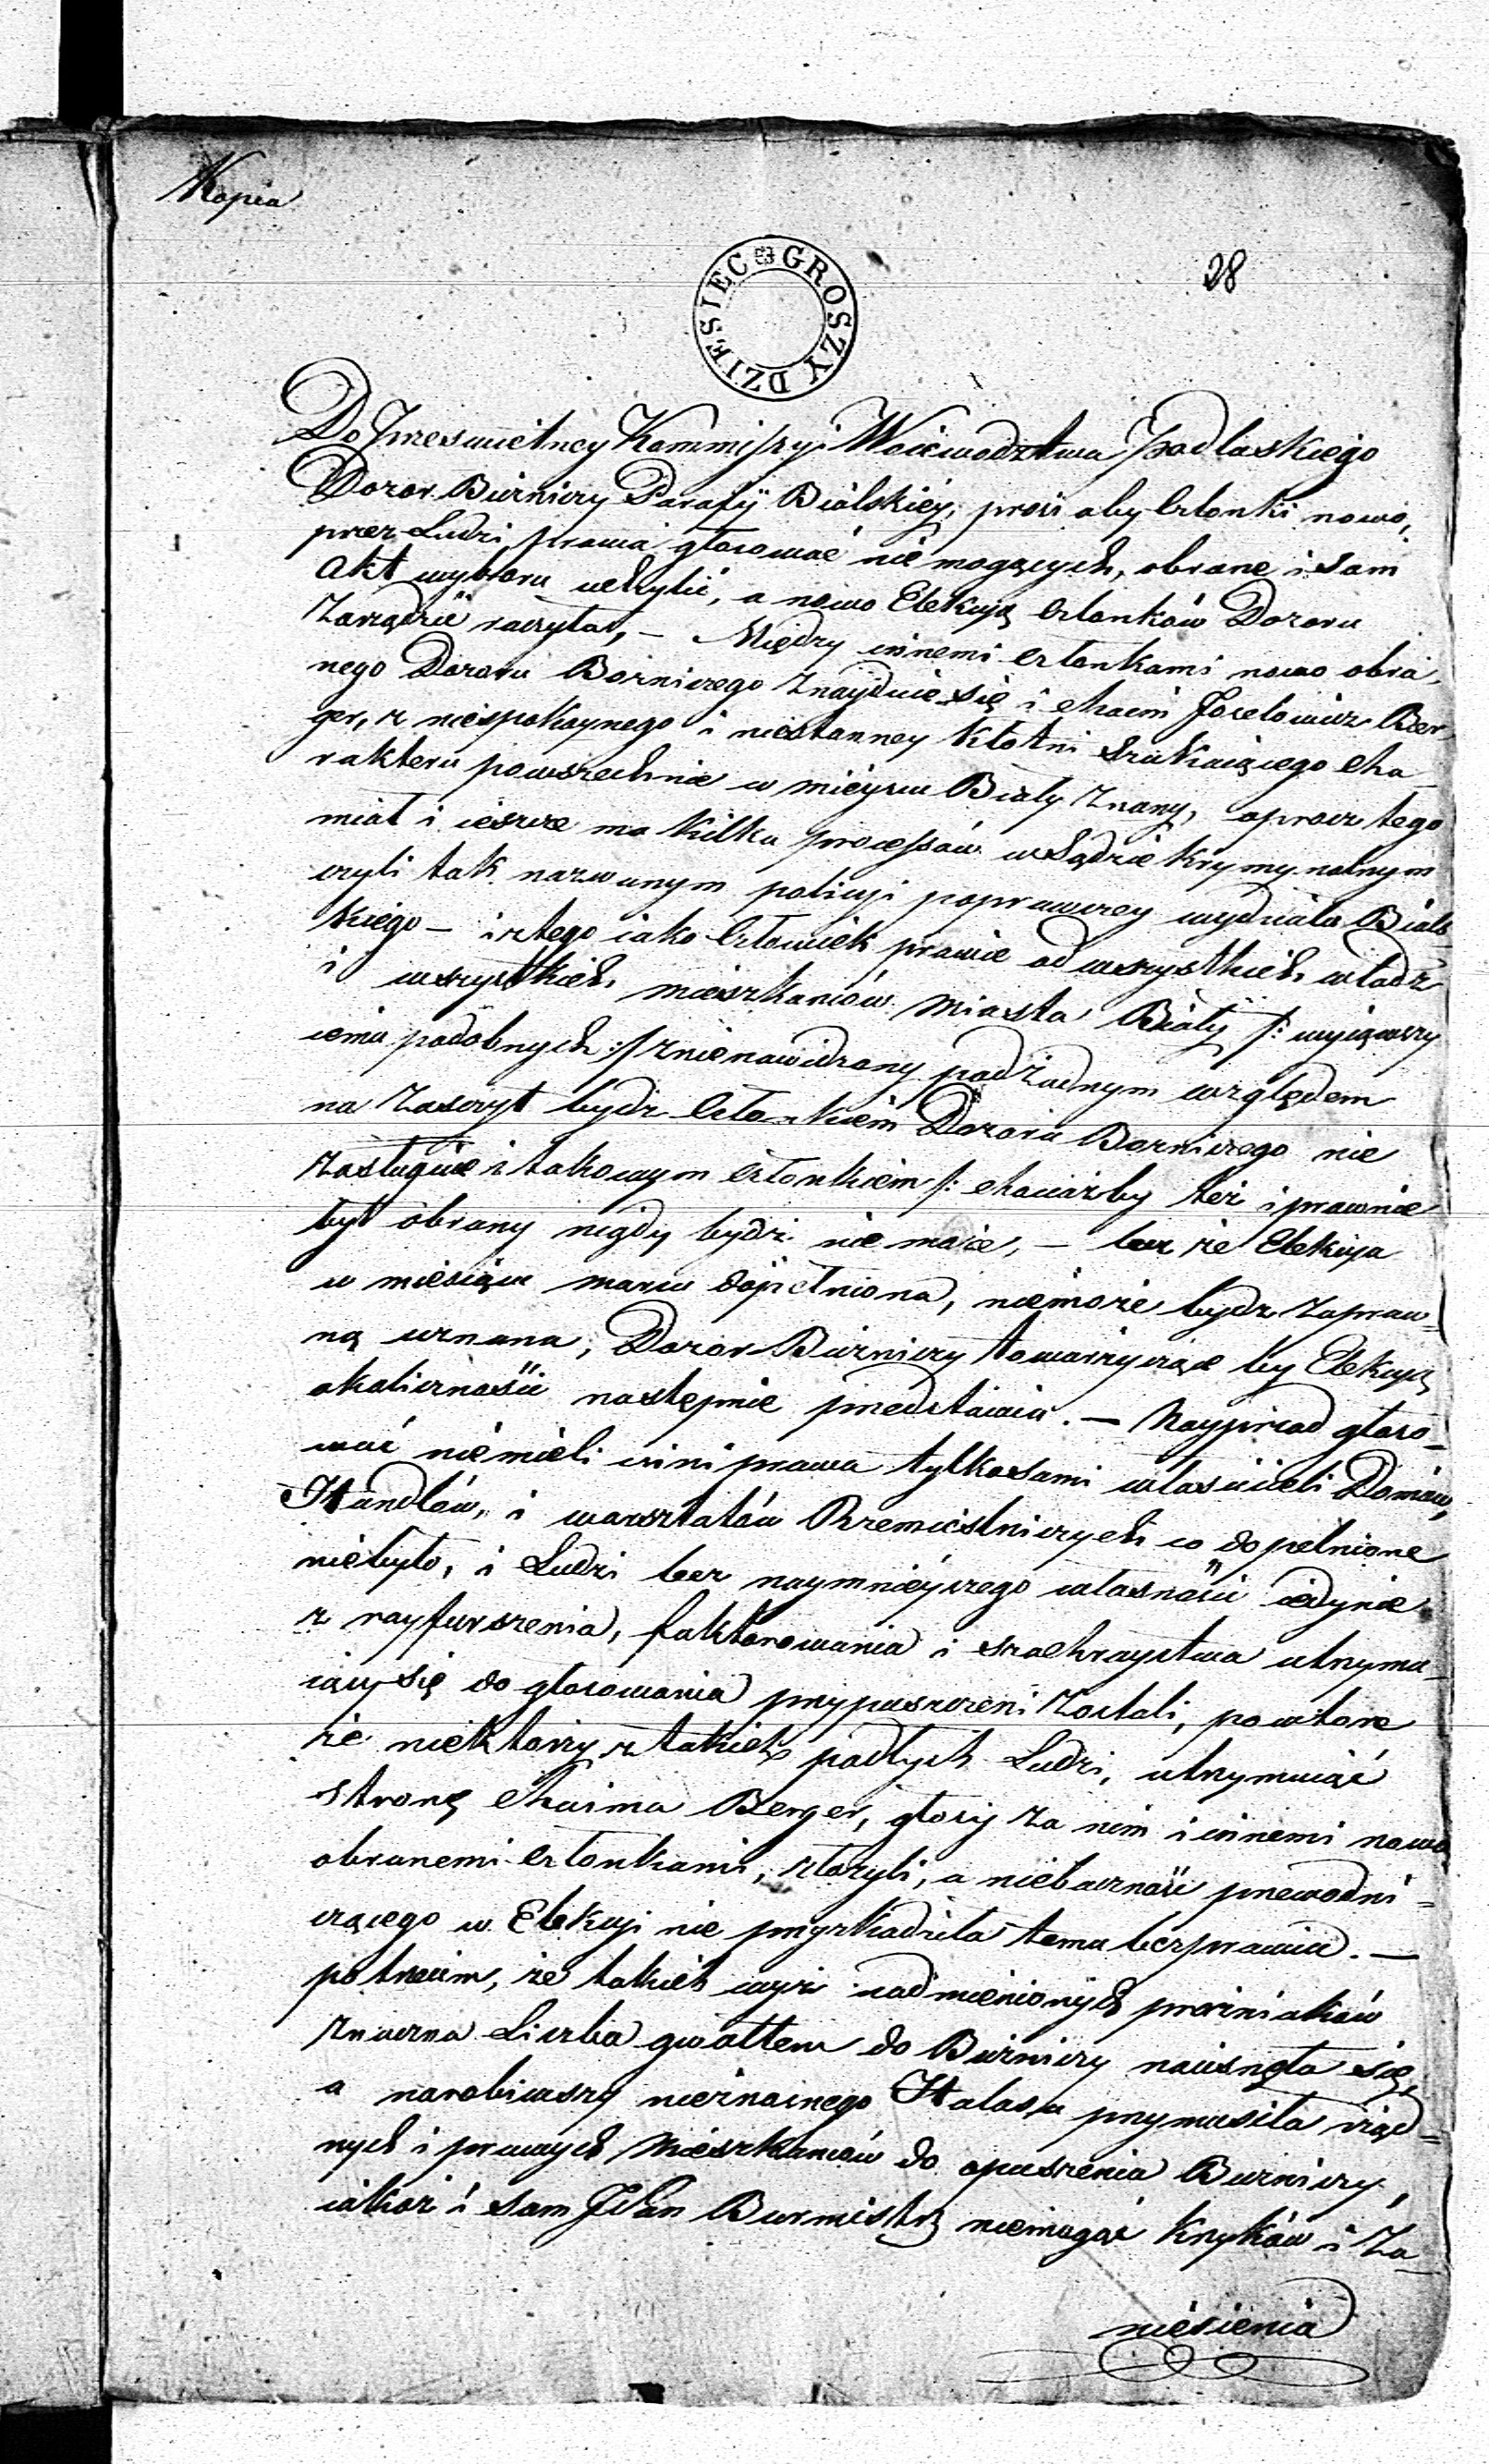 Kopia
28
DZIESIĘC GROSZY
Do Przeswietney Kommissyi Woiewodztwa Podlaskiego
Dozor Bużniczy Parafij Bialskiéy, prosi aby Członki nowo,
przez Ludzi prawa głosować nie mogących, obrane i sam
Akt wyboru uchylić, a nowo Elekcyą Członków Dozoru
Zarządzić raczyła, – Między innemi członkami nowo obra,
nego Dozoru Bożniczego znayduie się i Chaim Joselowicz Ber,
ger, z niespokoynego i niestanney kłotni szukaiącego cha
rakteru powszechnie w mieyscu Biały znany, oprocz tego
miał i ieszcze ma kilka processów w Sądzie Krymynalnym
czyli tak nazwanym policyi poprawczey wydziału Bials
kiego – i z tego iako człowiek prawie od wszystkich władz
i wszystkich mieszkańców Miasta Biały /: wyiąwszy
iemu podobnych :/ znienawidzony pod żadnym względem
na zaszczyt bydz członkiem Dozoru Bożniczego nie
zasługuie i takowym członkiem /: chociażby też i prawnie
był obrany nigdy bydz nie może, – lecz że Elekcya
w miesiącu marcu dopełniona, niemoże bydz za praw=
ną uznana, Dozor Bużniczy towarzyszące tey Elekcyi
okoliczności następnie przedstawia. – Nayprzod głoso=
wać nie mieli inni prawa tylko sami właściciele Domów,
Handlów, i warsztatów Rzemieślniczych co dopełnione
niebyło, i Ludzi bez naymnieyszego własności iedynie
z rayfurszenia, faktorowania i szachraystwa utrzymu=
iący się do głosowania przypuszczeni zostali, powtore
że niektorzy z takich podłych Ludzi, utrzymuiąc
stronę Chaima Berger, głosy za nim i innemi nowo
obranemi członkami, złożyli, a niebaczność przewodni=
czącego w Elekcyi nie przyszkadziła temu bezprawiu. –
potrzecim, że takich wyż nadmienionych prozniaków
znaczna Liczba gwałtem do Bużniczy nacisnęła się,
a narobiwszy nieznasnego Hałasu przymusiła rząd=
nych i prawych Mieszkancow do opuszczenia Bużniczy,
iakoż i sam JPan Burmistrz niemogąc krzyków i za
niesienia